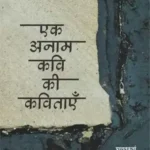 एक
अनाम
कवि
की
कविताएँ